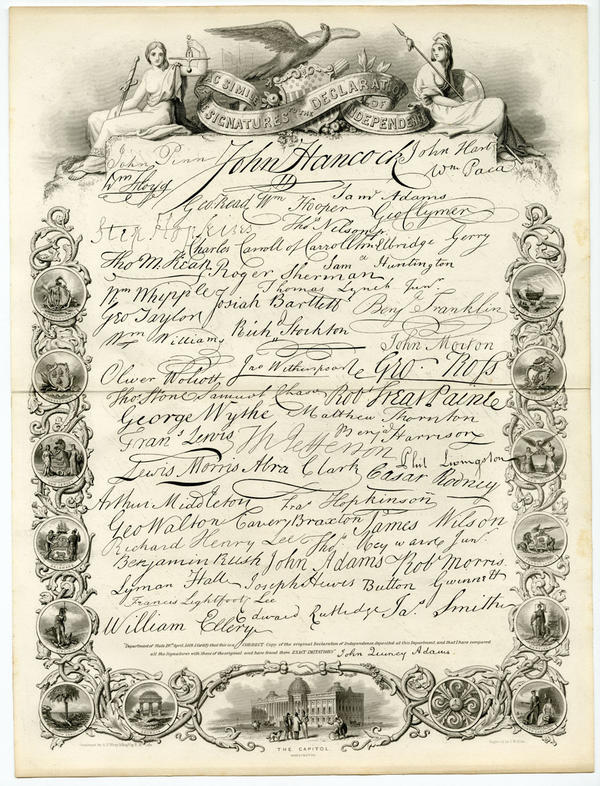 FAC SIMILES OF THE SIGNATURES TO THE DECLARATION OF INDEPENDENCE
John Penn John Hancock John Hart
Wm Floyd Wm Paca
Geo Read Wm Hooper Saml Adams
Geo Clymer
Step Hopkins Thos Nelson jr.
Charles Carroll of Carrollton Elbridge Gerry
Tho M:Kean Roger Sherman Saml Huntington
Wm Whipple Thomas Lynch Junr.
Geo Taylor Josiah Bartlett Benj Franklin
Wm Williams Richd Stockton
John Morton
Oliver Wolcott Jno Witherspoon Geo. Ross
Thos Stone Samuel Chase Robt Treat Paine
George Wythe Matthew Thornton
Frans Lewis Th Jefferson Benja Harrison
Lewis Morris Abra Clark Phil Livingston
Cæsar Rodney
Arthur Middleton Fras Hopkinson
Geo Walton Carter Braxton James Wilson
Richard Henry Lee Thos Heyward Junr.
Benjamin Rush John Adams Robt Morris.
Lyman Hall Joseph Hewes Button Gwinnett
Francis Lightfoot Lee
William Ellery Edward Rutledge Jas. Smith
"Department of State 19th April, 1819. I Certify that this is a CORRECT Copy of the original Declaration of Independence, deposited at this Department, and that I have compared
all the Signatures with those of the original and have found them EXACT IMITATIONS" John Quincy Adams.
THE CAPITOL
WASHINGTON